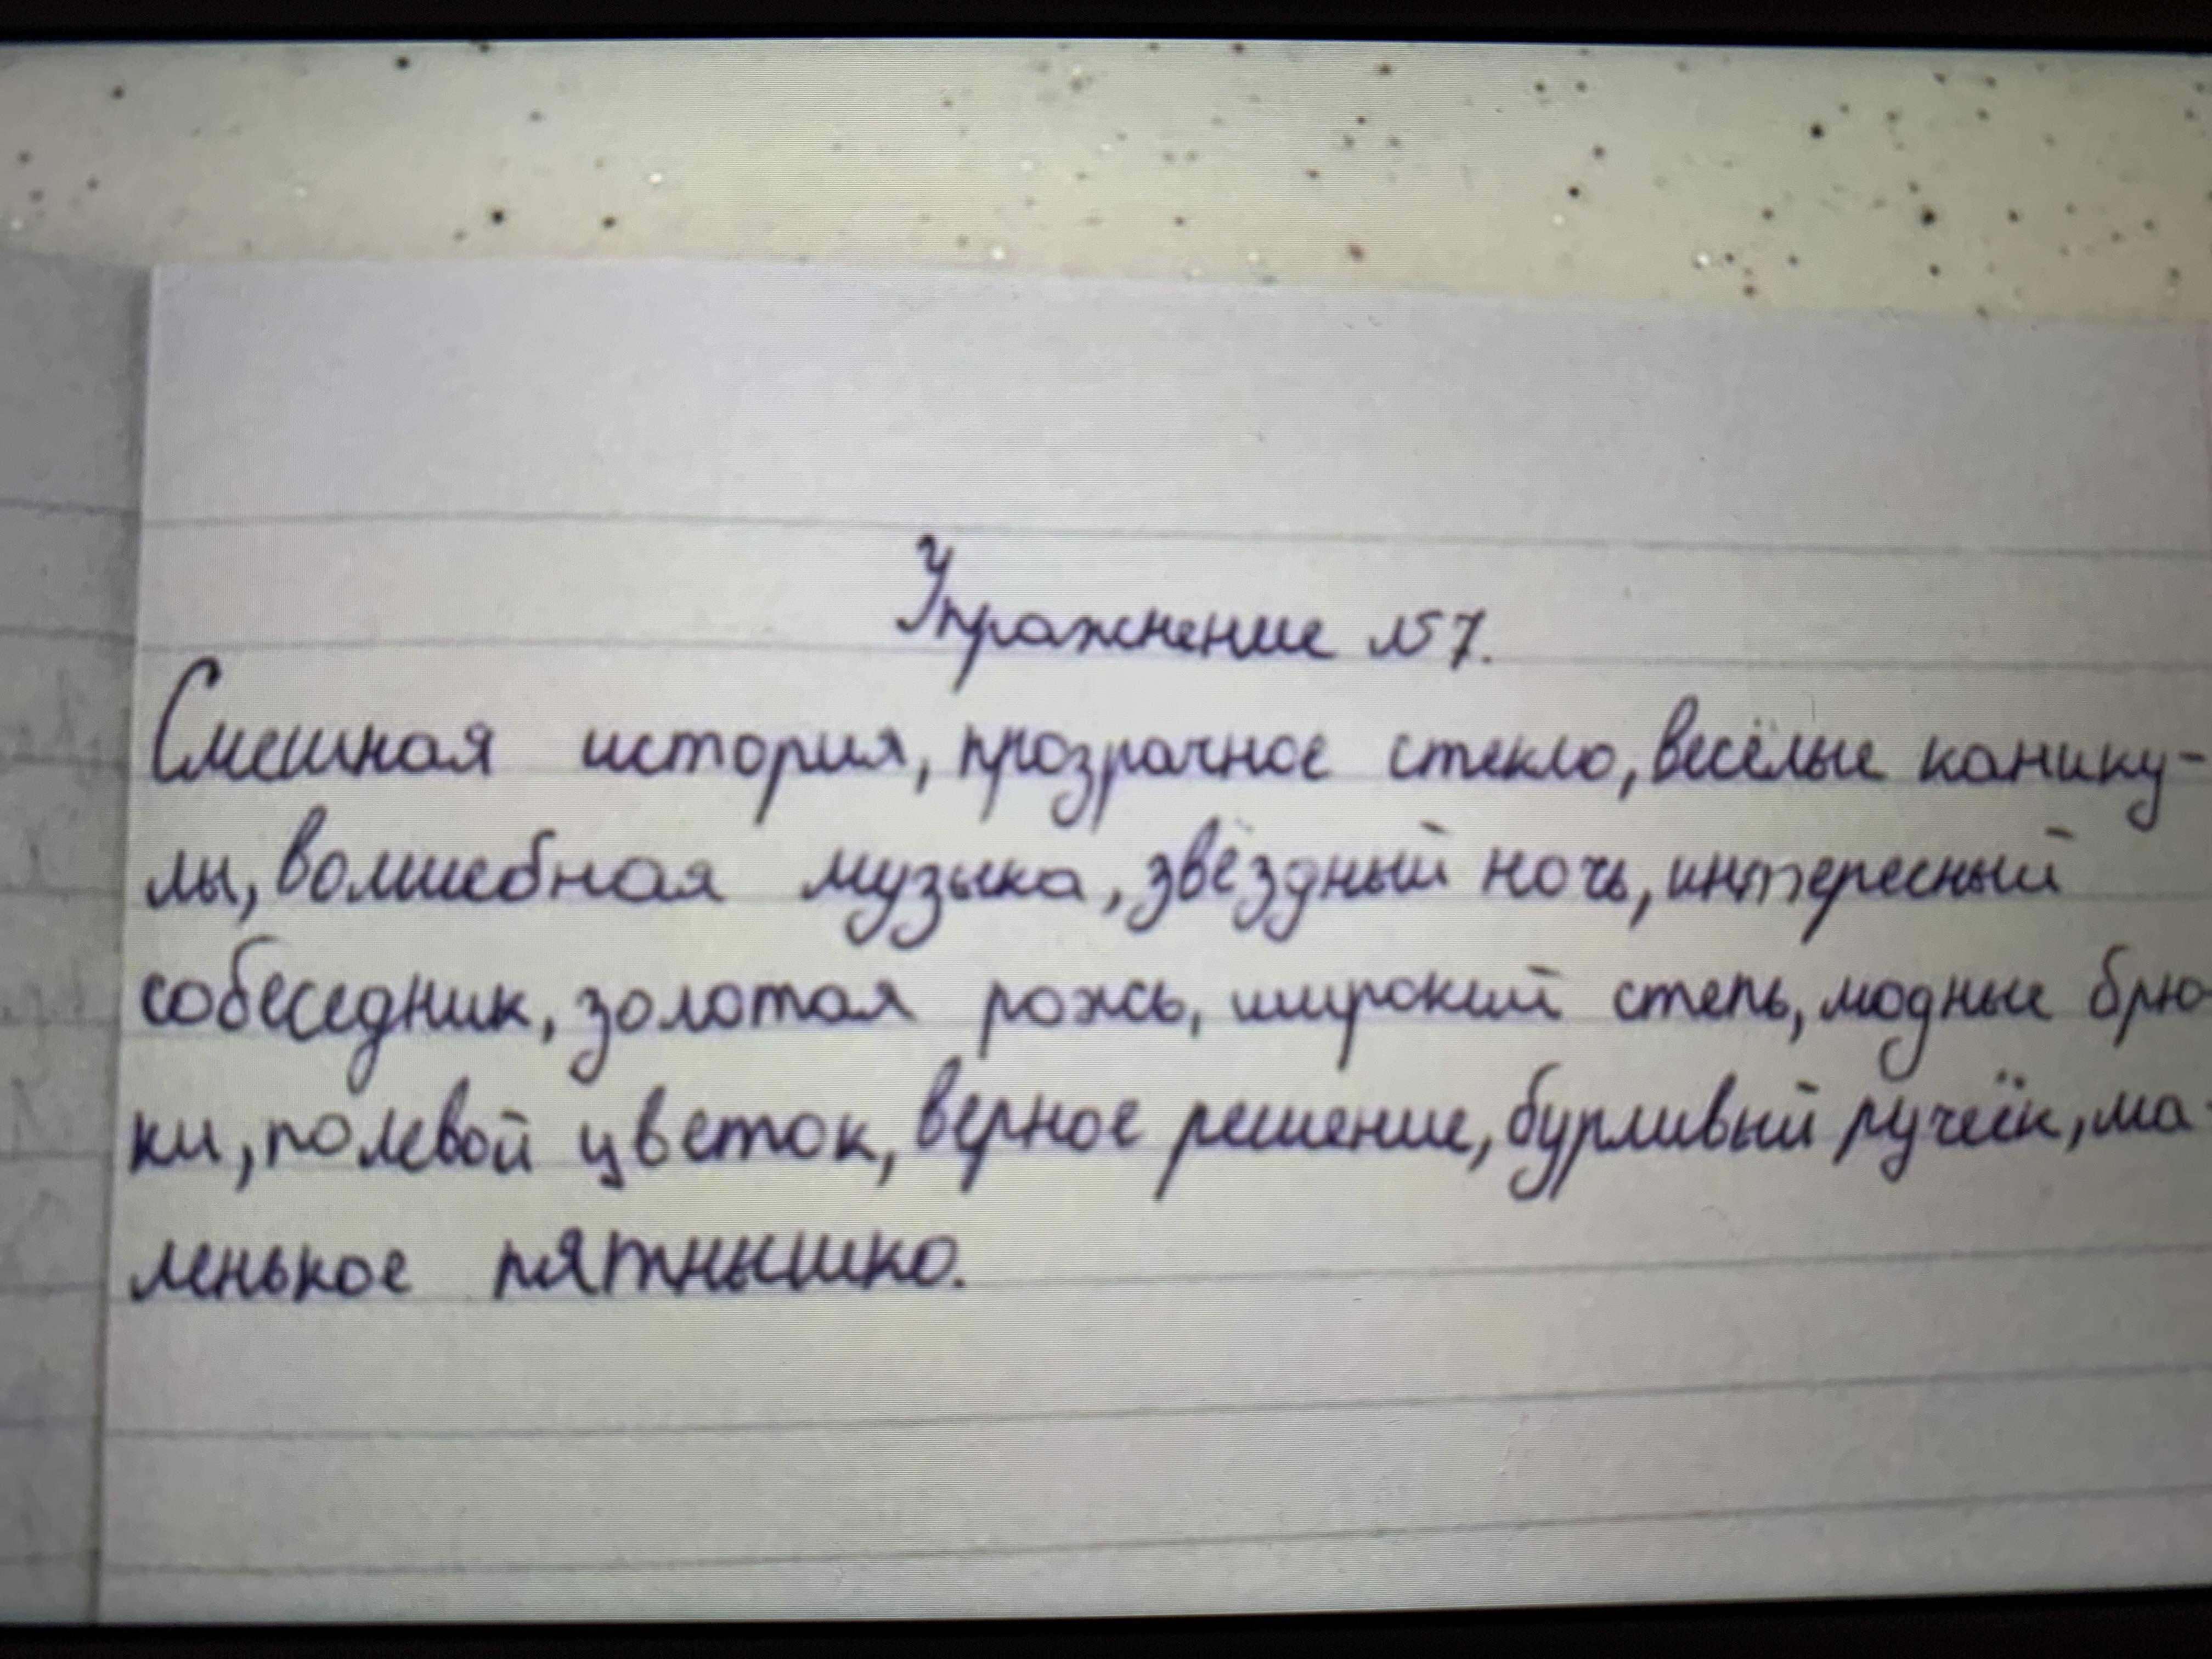 Упражнение №7.
Смешная история, прозрачное стекло, весёлые канику-
лы, волшебная музыка, звёздный ночь, интересный
собеседник, золотая рожь, широкий степь, модные брю-
ки, полевой цветок, верное решение, бурливый ручеёк, ма-
ленькое пятнышко.